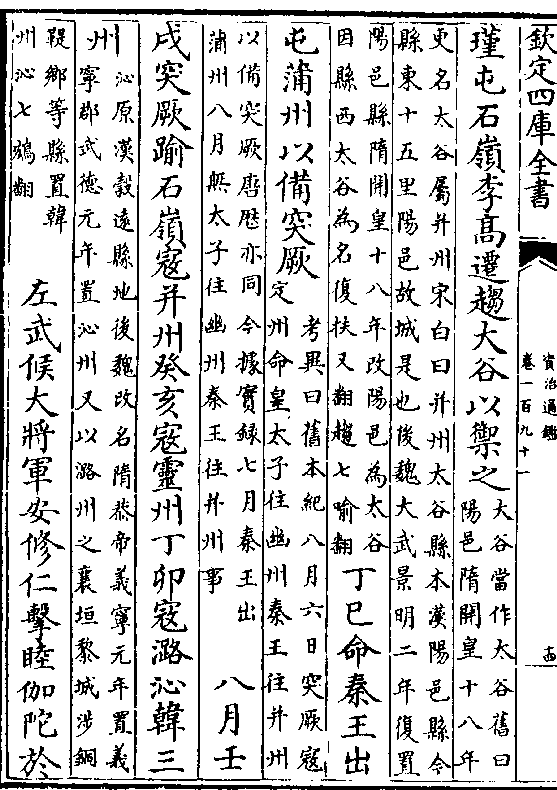 欽定四庫全書
資治通鑑
卷一百九十一
十四
瑾屯石嶺李高遷趨大谷以禦之
大谷當作太谷舊曰
陽邑隋開皇十八年
更名太谷屬并州宋白曰并州太谷縣本漢陽邑縣今
縣東十五里陽邑故城是也後魏大武景明二年復置
陽邑縣隋開皇十八年改陽邑為太谷
因縣西太谷為名復扶又翻趨七喻翻
丁巳命秦王出
屯蒲州以備突厥
考異曰舊本紀八月六日突厥寇
定州命皇太子往幽州秦王往并州
以備突厥唐歴亦同今據實録七月秦王出
蒲州八月無太子往幽州秦王往并州事
八月壬
戌突厥踰石嶺寇并州癸亥寇靈州丁卯寇潞沁韓三
州
沁原漢榖遠縣地後魏改名隋恭帝義寧元年置義
寧郡武德元年置沁州又以潞州之襄垣黎城涉銅
鞮鄉等縣置韓
州沁七鴆翻
左武候大將軍安修仁擊睦伽陀於